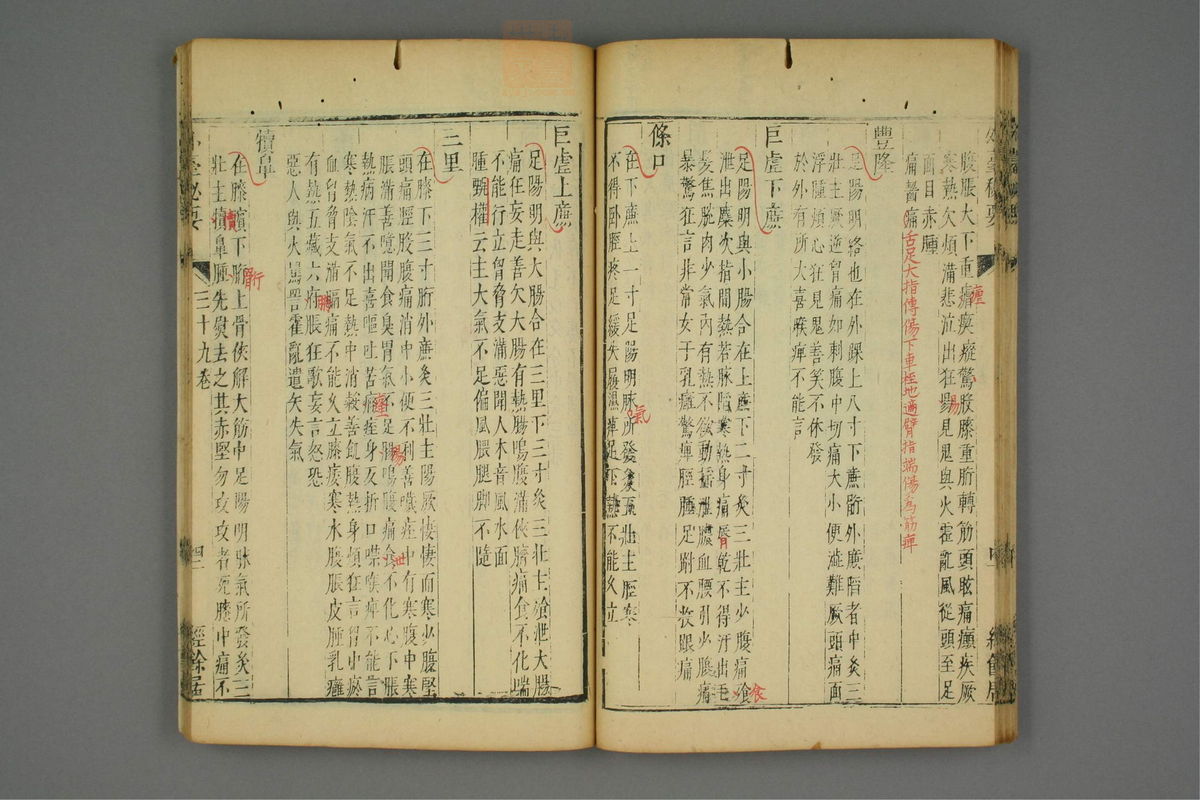 腹脹大下重瘖瘈瘲驚股膝重胻轉筋頭眩痛癲疾厥
寒熱欠煩滿悲泣出狂見鬼與火霍亂風從頭至足
面目赤腫
痛齧
舌足大指傳傷下車地適臂指端傷為筋痺
豐隆
足陽明絡也在外踝上八寸下廉胻外廉陷者中灸三
壯主厥逆胸痛如刺腹中切痛大小便澁難厥頭痛面
浮腫煩心狂見鬼善笑不休發
於外有所大喜喉痺不能言
巨虛下廉
足陽明與小腸合在上廉下三寸灸三壯主少腹痛飧
泄出糜次指間熱若脉陷寒熱身痛唇乾不得汗出毛
髮焦脫肉少氣內有熱不欲動搖泄膿血腰引少腹痛
暴驚狂言非常女子乳癰驚痺脛腫足跗不收跟痛
條口
在下廉上一寸足陽明脉氣所發灸三壯主脛寒
不得卧脛疼足緩失履濕痺足下熱不能久立
巨虛上廉
足陽明與大腸合在三里下三寸灸三壯主飧泄大腸
痛狂妄走善欠大腸有熱腸鳴腹滿俠臍痛食不化喘
不能行立胸脅支滿惡聞人木音風水面
腫甄權云主大氣不足偏風腲腿脚不隨
三里
在膝下三寸胻外廉灸三壯主陽厥悽悽而寒少腹堅
頭痛脛股腹痛消中小便不利善噦痓中有寒腹中寒
脹滿善噫聞食臭胃氣不足腸鳴腹痛泄食不化心下脹
熱病汗不出喜嘔吐苦痓身反折口噤喉痺不能言
寒熱陰氣不足熱中消穀善飢腹熱身煩狂言胸中瘀
血胸脅支滿膈痛不能久立膝痿寒水腹脹皮腫乳癰
有熱五藏六府脹狂歌妄言怒恐
惡人與火罵詈霍亂遺矢失氣
犢鼻
在膝髕下胻上骨俠解大筋中足陽明脉氣所發灸三
壯主犢鼻腫先熨去之其赤堅勿攻攻者死膝中痛不
三十九卷
四一
經餘居